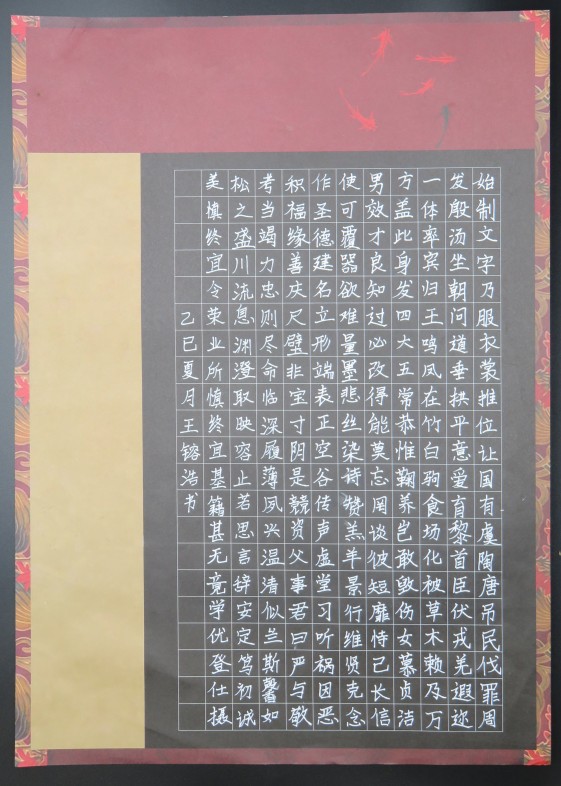 始制文字乃服衣裳推位让国有虞陶唐吊民伐罪周
发殷汤坐朝问道垂拱平意爱育黎首臣伏戎羌遐迩
一体率宾归王鸣凤在竹白驹食场化被草木赖及万
方盖此身发四大五常恭惟鞠养岂敢毁伤女慕贞洁
男效才良知过必改得能莫忘罔谈彼短靡恃己长信
使可覆器欲难量墨悲丝染诗赞羔羊景行维贤克念
作圣德建名立形端表正空谷传声虚堂习听祸因恶
积福缘善庆尺璧非宝寸阴是競资父事君曰严与敬
考当竭力忠则尽命临深履薄夙兴温清似兰斯馨如
松之盛川流息渊澄取映容止若思言辞安定笃初诚
美慎终宜令荣业所慎终宜基籍甚无竟学优登仕摄
乙巳夏月王镕浩书